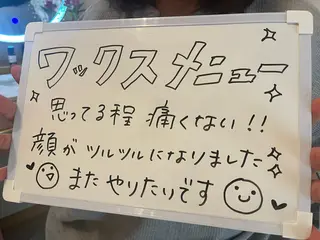 ワックスメニュー
思ってる程 痛くない!!
顔がツルツルになりました
また やりたいです